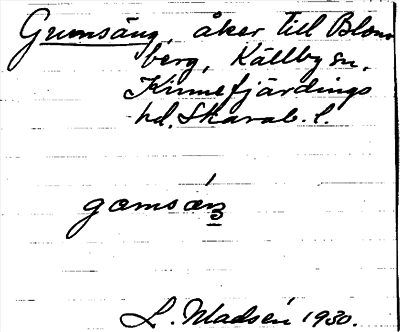 Grumsäng, åker till Blom-
berg, Källby sn,
Kinnefjärdings
hd. Skarab. l.
L. Madsén 1930.